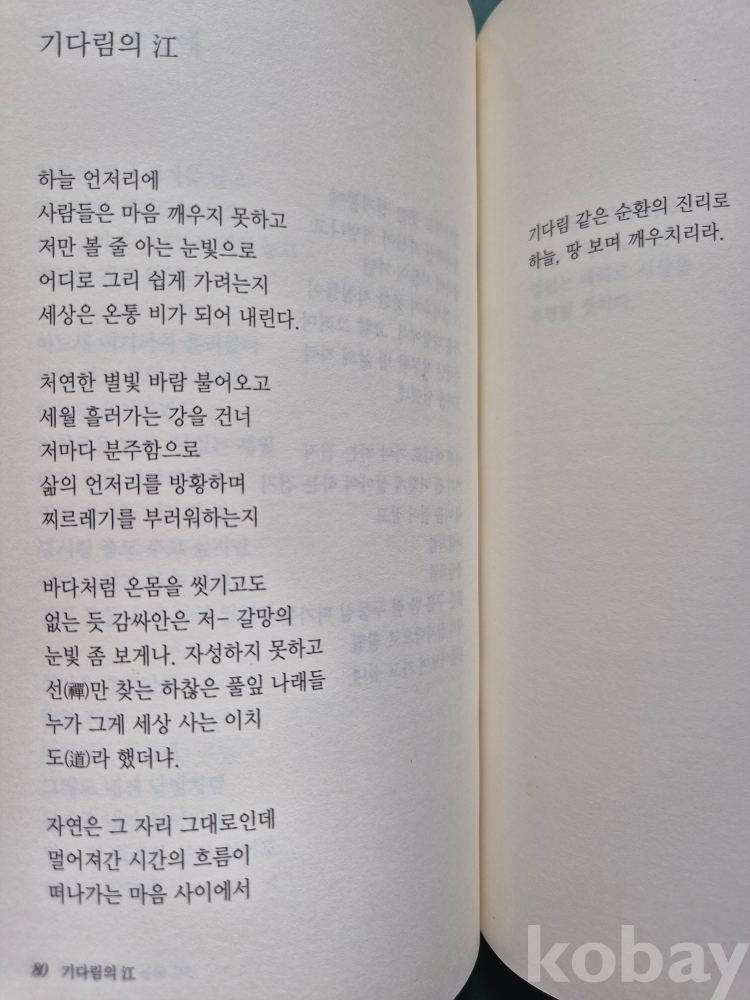 기다림의 江
하늘 언저리에
사람들은 마음 깨우지 못하고
저만 볼 줄 아는 눈빛으로
어디로 그리 쉽게 가려는지
세상은 온통 비가 되어 내린다.
처연한 별빛 바람 불어오고
세월 흘러가는 강을 건너
저마다 분주함으로
삶의 언저리를 방황하며
찌르레기를 부러워하는지
바다처럼 온몸을 씻기고도
없는 듯 감싸안은 저- 갈망의
눈빛 좀 보게나. 자성하지 못하고
선(禪)만 찾는 하찮은 풀잎 나래들
누가 그게 세상 사는 이치
도(道)라 했더냐.
자연은 그 자리 그대로인데
멀어져간 시간의 흐름이
떠나가는 마음 사이에서
80 기다림의 江
기다림 같은 순환의 진리로
하늘, 땅 보며 깨우치리라.
kobay